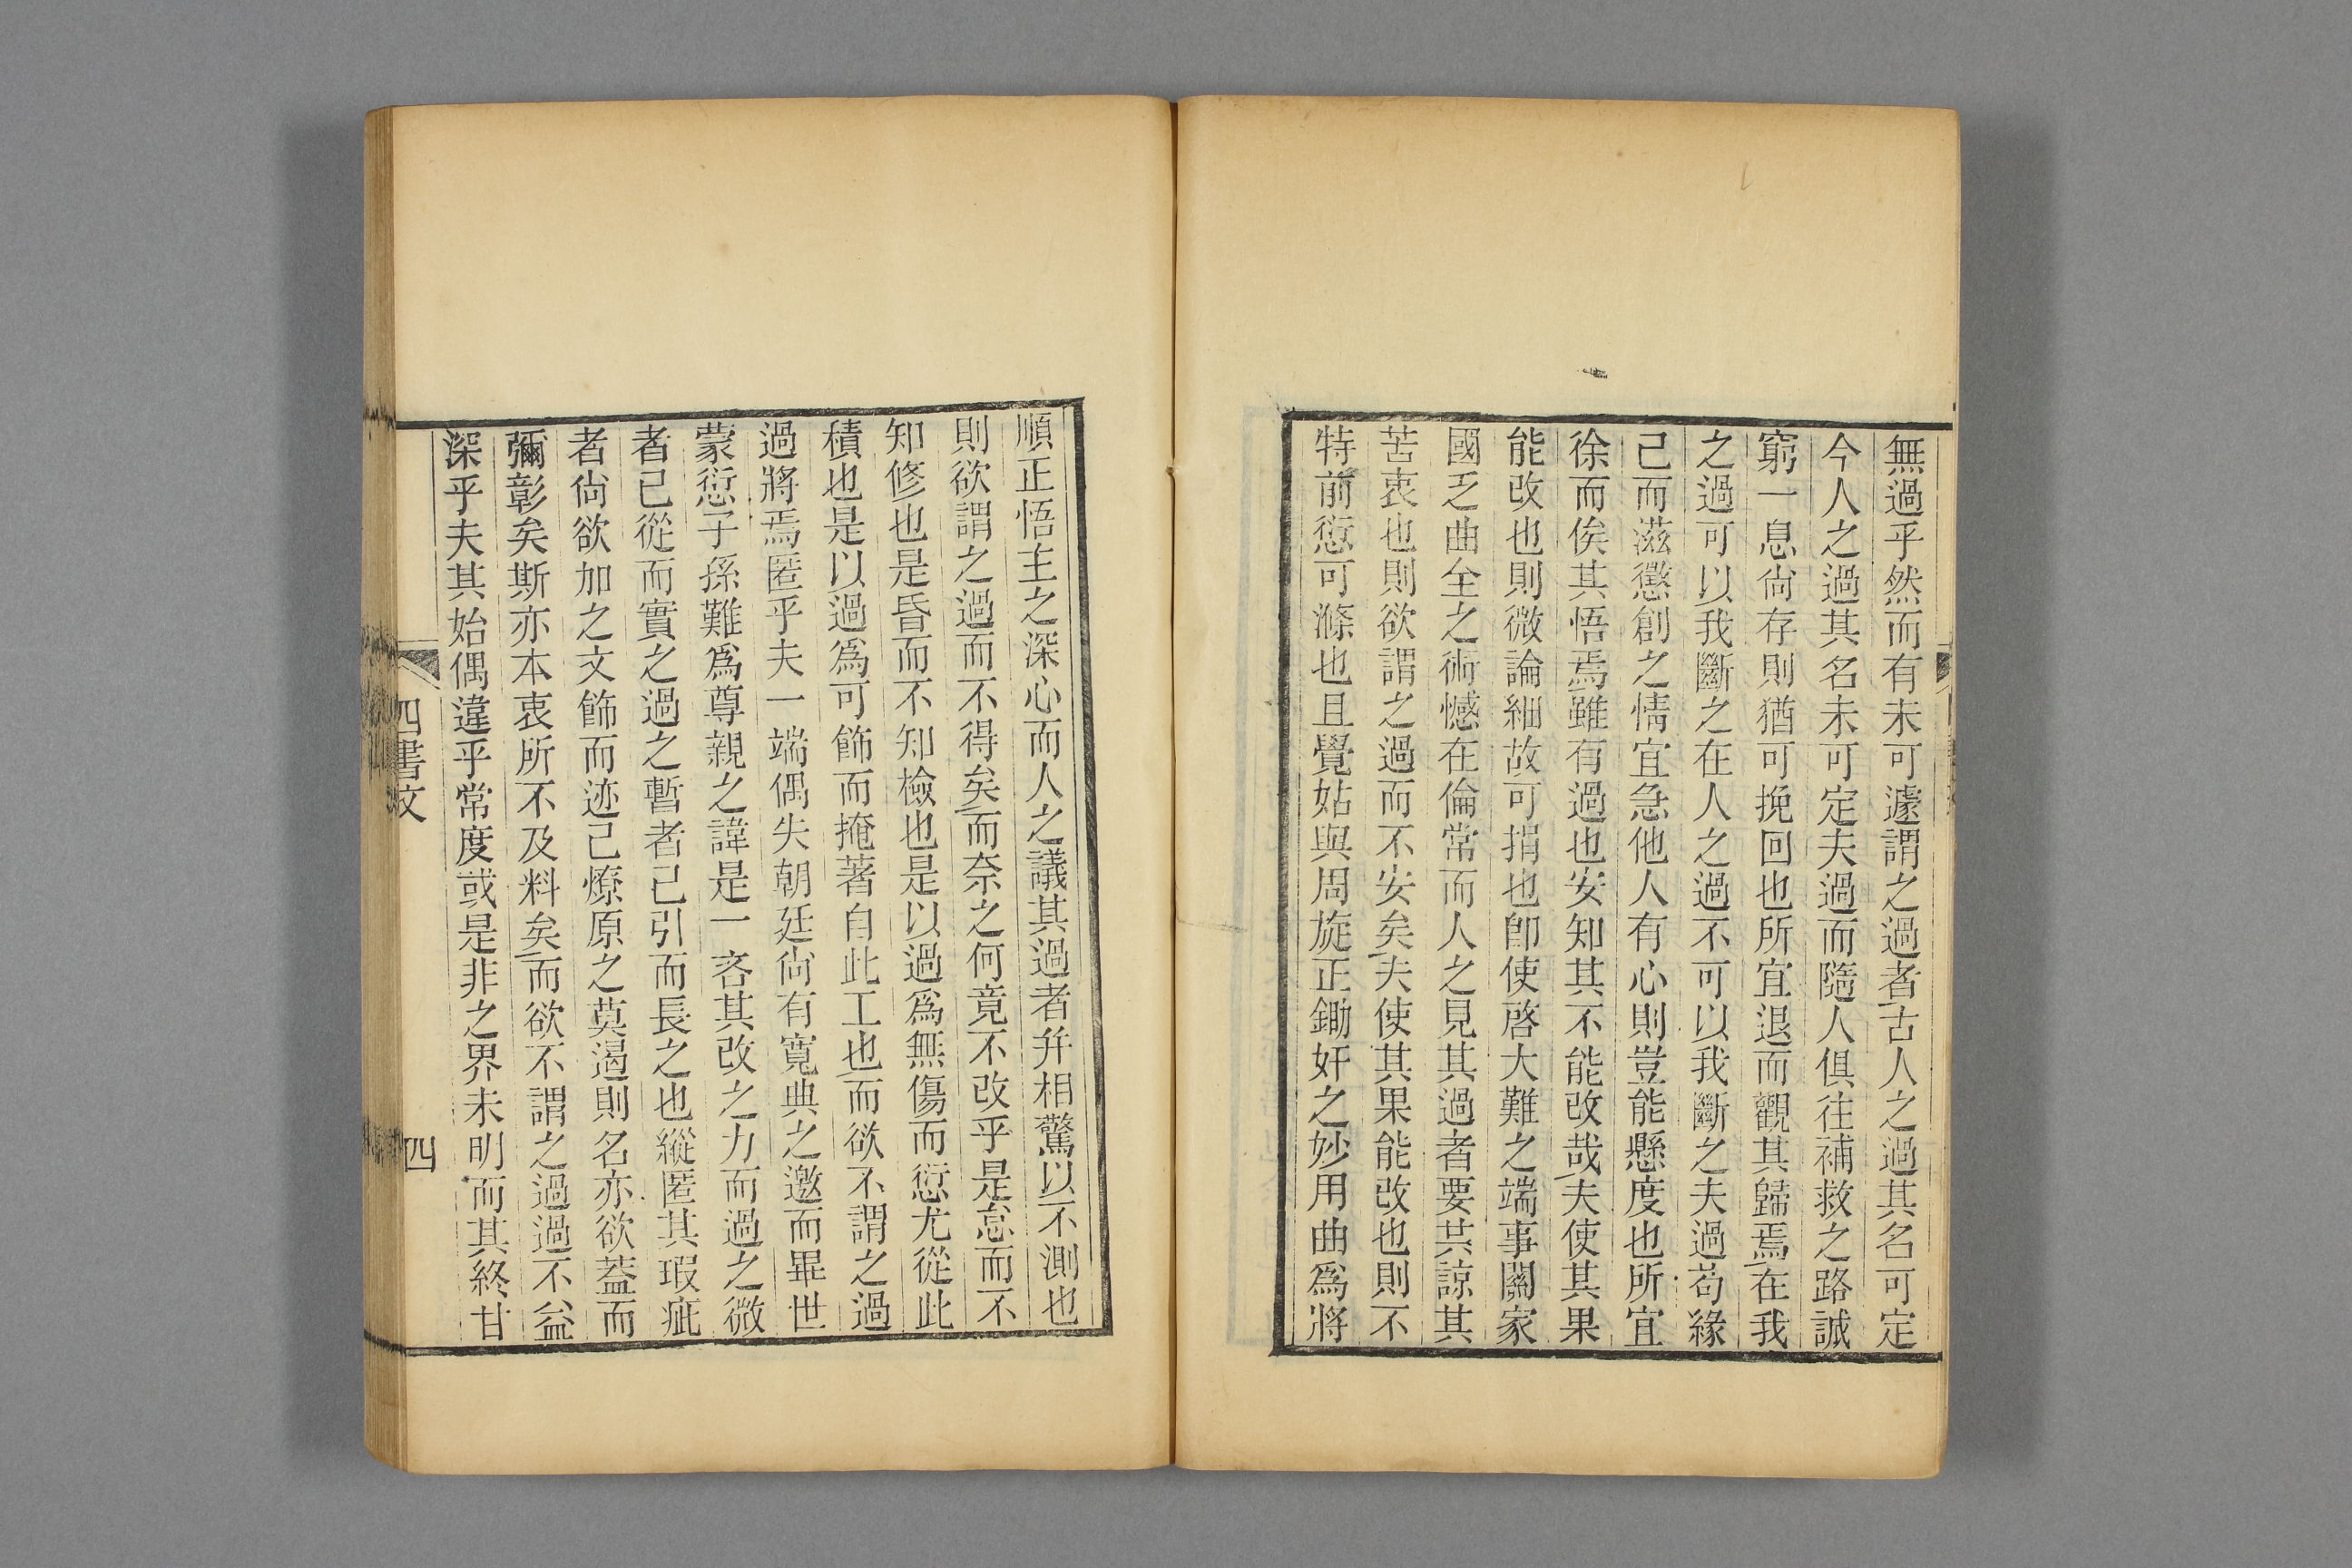 無過乎然而有未可遽謂之過者古人之過其名可定
今人之過其名未可定夫過而隨人俱往補救之路誠
窮一息尙存則猶可挽回也所宜退而觀其歸焉在我
之過可以我斷之在人之過不可以我斷之夫過苟緣
己而滋懲創之情宜急他人有心則豈能懸度也所宜
徐而俟其悟焉雖有過也安知其不能改哉夫使其果
能改也則微論細故可捐也卽使啓大難之端事關家
國乏曲全之術憾在倫常而人之見其過者要共諒其
苦衷也則欲謂之過而不安矣夫使其果能改也則不
特前愆可滌也且覺姑與周旋正鋤奸之妙用曲爲將
順正悟主之深心而人之議其過者幷相驚以不測也
則欲謂之過而不得矣而奈之何竟不改乎是怠而不
知修也是昏而不知檢也是以過爲無傷而愆尤從此
積也是以過爲可飾而掩著自此工也而欲不謂之過
過將焉匿乎夫一端偶失朝廷尙有寬典之邀而畢世
蒙愆子孫難爲尊親之諱是一吝其改之力而過之微
者已從而實之過之暫者已引而長之也縱匿其瑕疵
者尙欲加之文飾而迹已燎原之莫遏則名亦欲蓋而
彌彰矣斯亦本衷所不及料矣而欲不謂之過過不益
深乎夫其始偶違乎常度或是非之界未明而其終甘
四書文
四